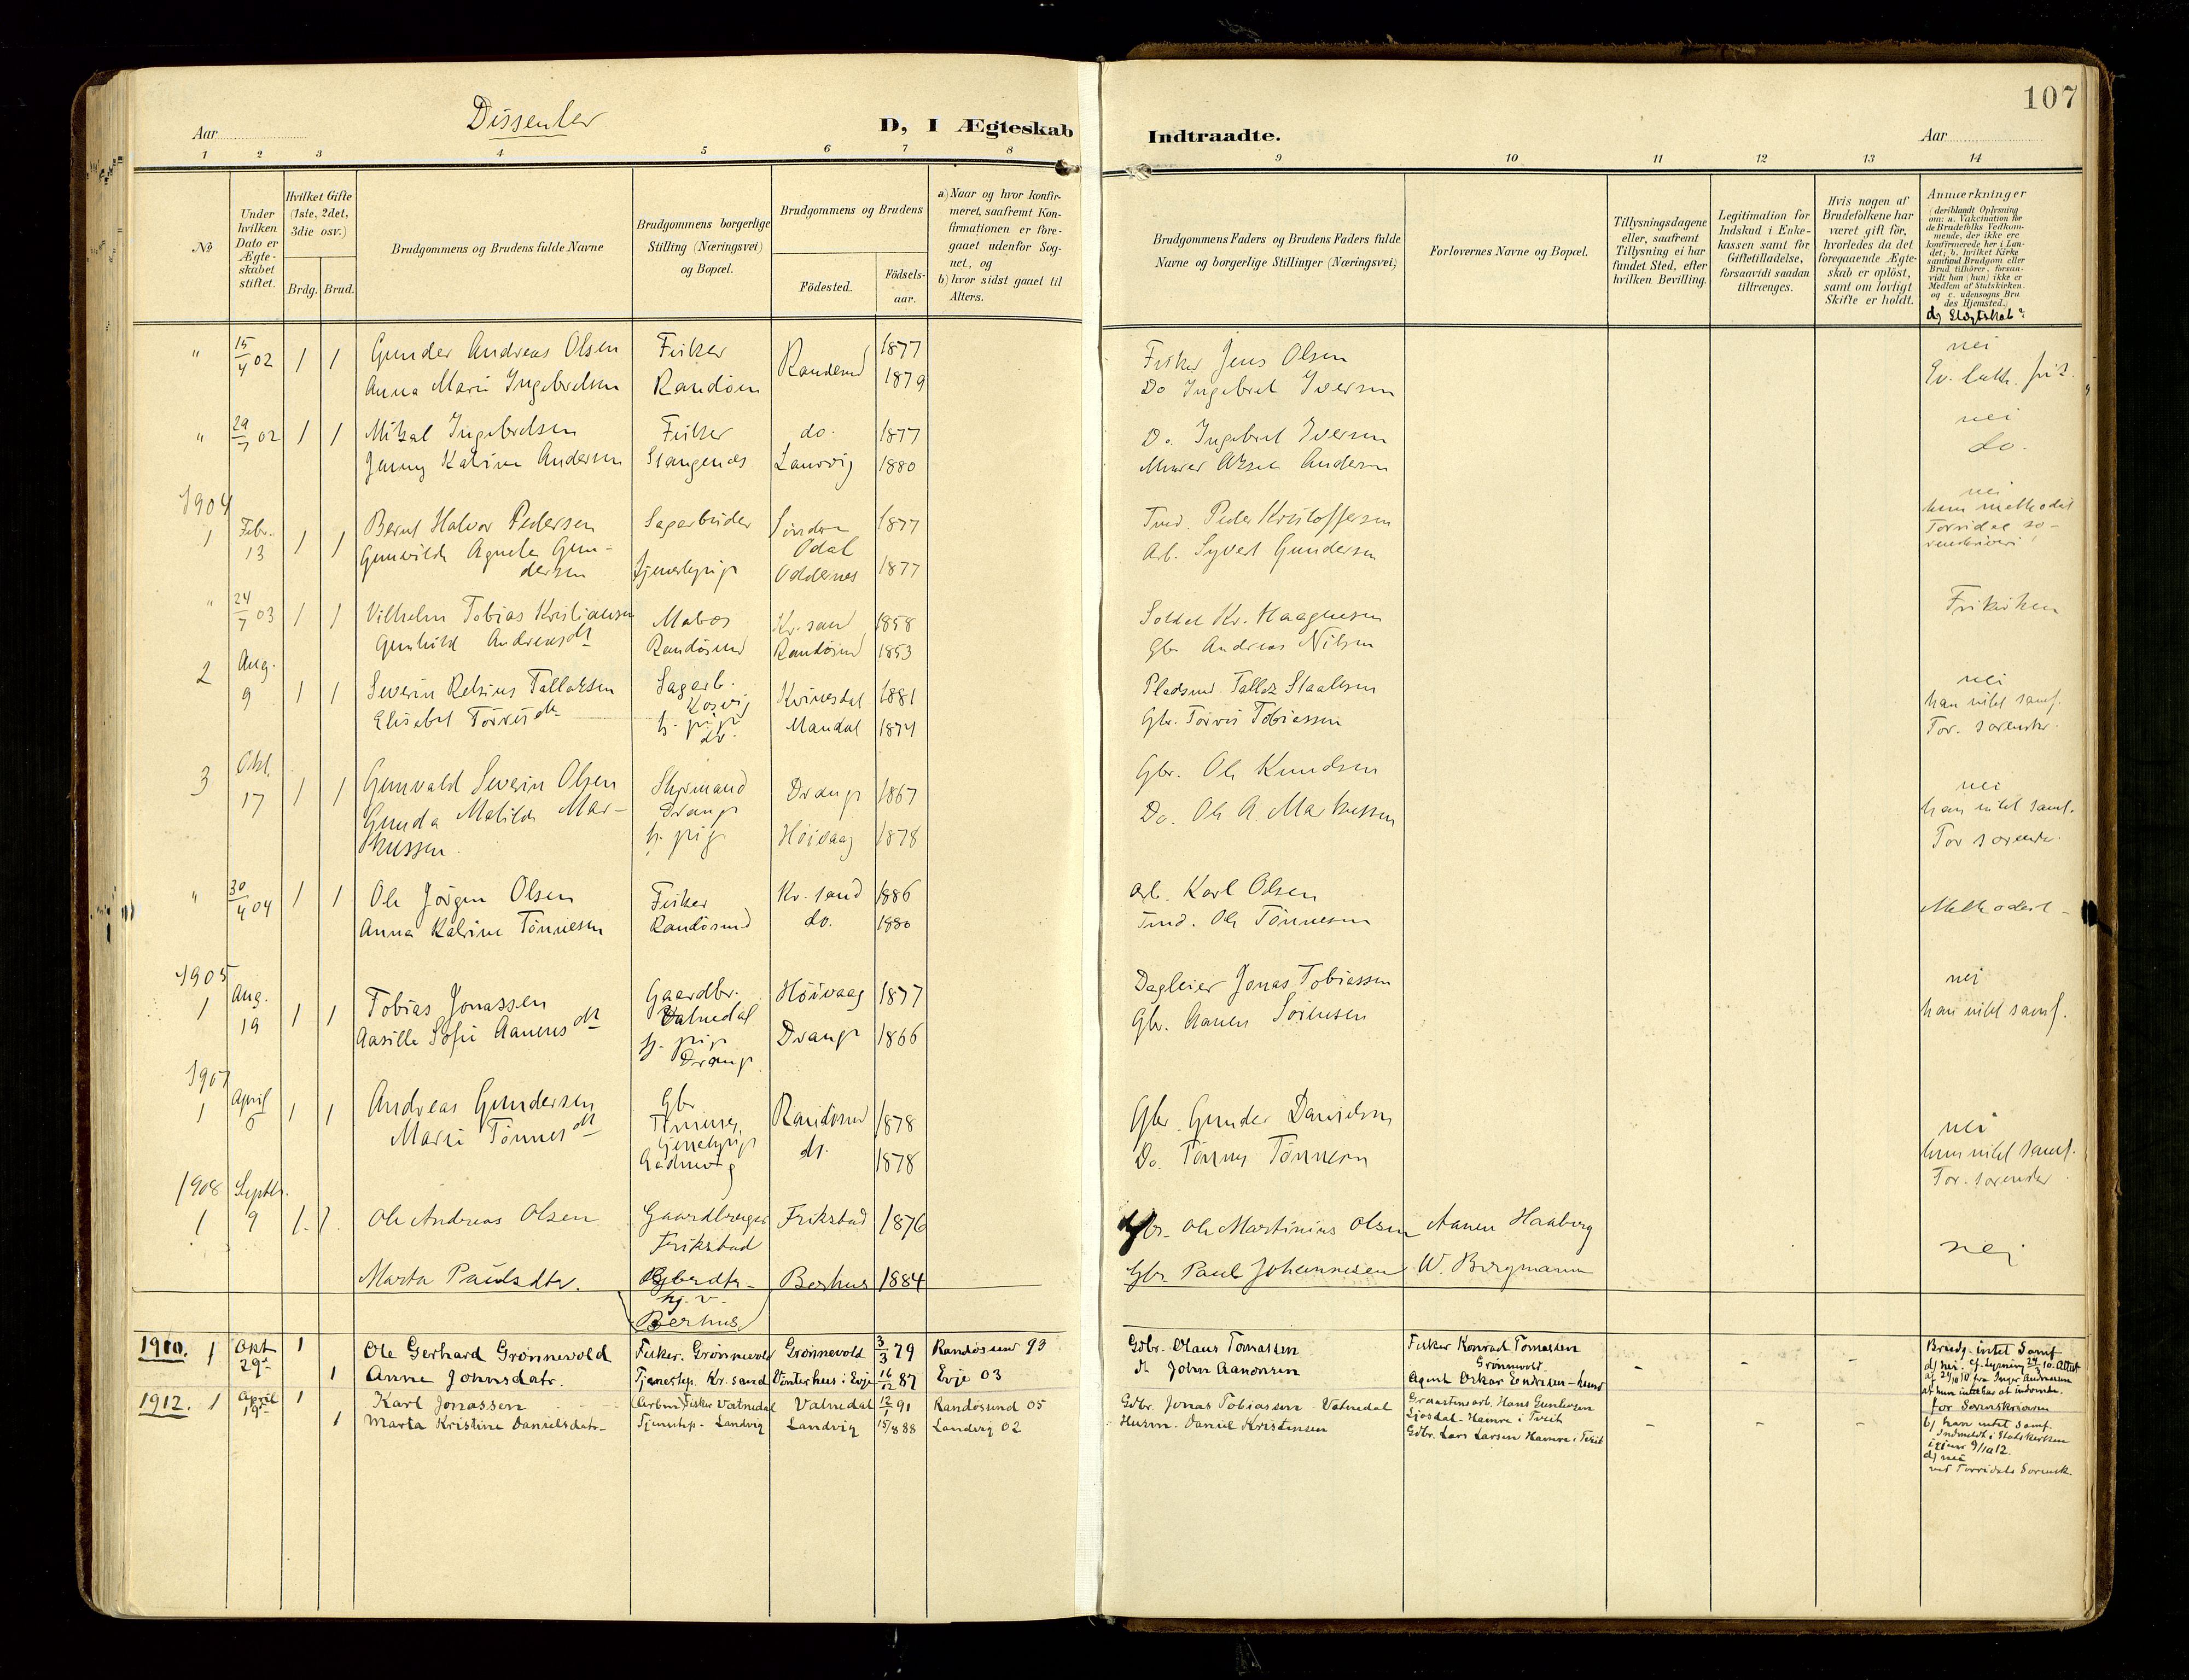 Dissenter
107
Aar
D, I Ægteskab Indtraadte.
Aar
1 2 3 4 5 6 7 8 9 10 11 12 13 14
No
Under hvilken Dato er Ægteskabet stiftet.
Hvilket Gifte (1ste, 2det, 3die osv.)
Brdg. Brud.
Brudgommens og Brudens fulde Navne
Brudgommens borgerlige Stilling (Næringsvei) og Bopæl.
Brudgommens og Brudens
Födested.
Födselsaar.
a) Naar og hvor konfirmeret, saafremt Konfirmationen er foregaaet udenfor Sognet, og
b) hvor sidst gaaet til Alters.
Brudgommens Faders og Brudens Faders fulde Navne og borgerlige Stillinger (Næringsvei)
Forlovernes Navne og Bopæl.
Tillysningsdagene eller, saafremt Tillysning ei har fundet Sted, efter hvilken Bevilling.
Legitimation for Indskud i Enkekassen samt for Giftetilladelse, forsaavidt saadan tiltrænges.
Hvis nogen af Brudefolkene har været gift før, hvorledes da det foregaaende Ægteskab er oplöst, samt om lovligt Skifte er holdt.
Anmærkninger
(deriblandt Oplysning om: a. Vakcination for de Brudefolks Vedkommende, der ikke ere konfirmerede her i Landet; b. hvilket Kirkesamfund Brudgom eller Brud tilhörer, forsaavidt han (hun) ikke er Medlem af Statskirken og c. udensogns Brudes Hjemsted.)
d) Slægtskab?
" 15/4 02 1 1 Gunder Andreas Olsen Fisker Randesund 1877 Fisker Jens Olsen nei
Anna Marie Ingebretsen Randøsu 1879 Do Ingebret Iversen Ev. luth. fri
" 29/7 02 1 1 Mikal Ingebretsen Fisker do. 1877 Do. Ingebret Iversen nei
Jenny Katrine Andersen Stangenes Laurvig 1880 Murer Andersen do.
1904
1 Febr. 13 1 1 Bernt Halvor Pedersen Sagarbeider Søndre Odal 1877 Peder Kristoffersen nei
Gunvild Agnete Gundersen Tjenestepige Oddernes 1877 Arb. Syvert Gundersen hun methodist
" 24/7 03 1 1 Vilhelm Tobias Kristiansen Matros Kr.sand 1858 Soldat Kr. Haagensen Frikirken
Gunhild Andreasdt Randøsund Randøsund 1853 Gbr Andreas Nilsen
2 Aug. 9 1 1 Severin Tallaksen Sagarb. Kosvig Kvinesdal 1881 Pladsmd. Tallak Staalesen nei
Elisabet Torvisdt do. Mandal 1874 Gbr. Torvis Tobiassen han intet samf.
Tor. sorenskr.
3 Okt. 17 1 1 Gunvald Severin Olsen Styrmand Drange 1867 Gbr. Ole Knudsen nei
Gunda Matilde Markussen Drange Høivaag 1878 Do. Ole A. Markussen han intet samf.
Tor sorensk.
" 30/4 04 1 1 Ole Jörgen Olsen Fisker Kr.sand 1886 Arb. Karl Olsen Methodist
Anna Katrine Tönnesen Randösund do. 1880 Tmd. Ole Tönnesen
1905
1 Aug. 19 1 1 Tobias Jonassen Gaardbr. Valnedal Höivaag 1877 Dagleier Jonas Tobiassen nei
Aasille Sofie Aanensdt Drange Drange 1866 Gbr. Aanen Sörensen han intet samf.
1907
1 April 1 1 Andreas Gundersen Gbr Randösund 1878 Gbr. Gunder Danielsen nei
Marie Tönnesdt Tjenestepige do. 1878 Do. Tönnes Tönnesen hun intet samf.
Tor. sorensk.
1908
1 Septbr. 9 1. 1. Ole Andreas Olsen Gaardbruger Frikstad Frikstad 1876 Gbr. Ole Martinius Olsen Aanen Haaberg
Marta Paulsdtr. Gbrdtr. hj. v. Berhus Berhus 1884 Gbr. Paul Johannesen W. Bergmann nei
1910. 1 Okt 29 1 Ole Gerhard Grönnevold Fisker. Grönnevold Grönnevold 3/3 79 Randösund 93 Gdbr. Olaus Tomassen Fisker Konrad Tomassen Grönnevold. Brudg. intet Samf
1 Anne Johnsdatr. Tjenestep. Kr.sand Vinterhus i Evje 16/12 87 Evje 03 dt John Aanonsen Agent Oskar Endresen
for Sorenskriveren
1912. 1 April 19 1 Karl Jonassen (Arbm) Fisker Vatnedal Valnedal 12/1 91 Randösund 05 Gdbr. Jonas Tobiassen Vatnedal Hans Gunleusen Hamre i Tveit b) han intet samf.
1 Marta Kristine Danielsdatr. Tjenstep. Landvig Landvig 15/8 88 Landvig 02 Husm. Daniel Kristensen Gdbr. Lars Larsen Hamre i Tveit Indmeldt i Statskirken
d) nei
ved Torridals Sorensk.